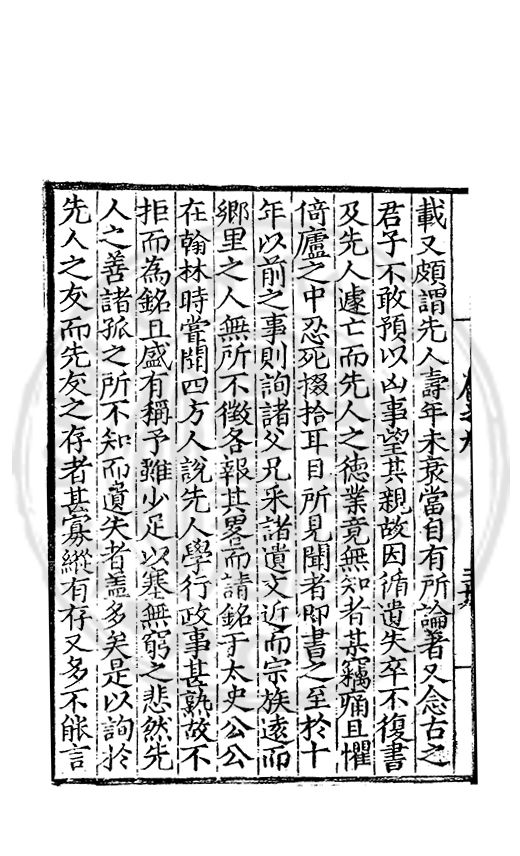 載又頗謂先人壽年未衰當自有所論著又念古之
君子不敢預以凶事望其親故因循遺失卒不復書
及先人遽亡而先人之德業竟無知者某竊痛且懼
倚廬之中忍死掇拾耳目所見聞者即書之至於十
年以前之事則詢諸父兄采諸遺文近而宗族遠而
鄉里之人無所不徵各報其畧而請銘于太史公公
在翰林時嘗聞四方人說先人學行政事甚熟故不
拒而為銘且盛有稱予雖少足以塞無窮之悲然先
人之善諸孤之所不知而遺失者盖多矣是以詢於
先人之友而先友之存者甚寡縱有存又多不能言